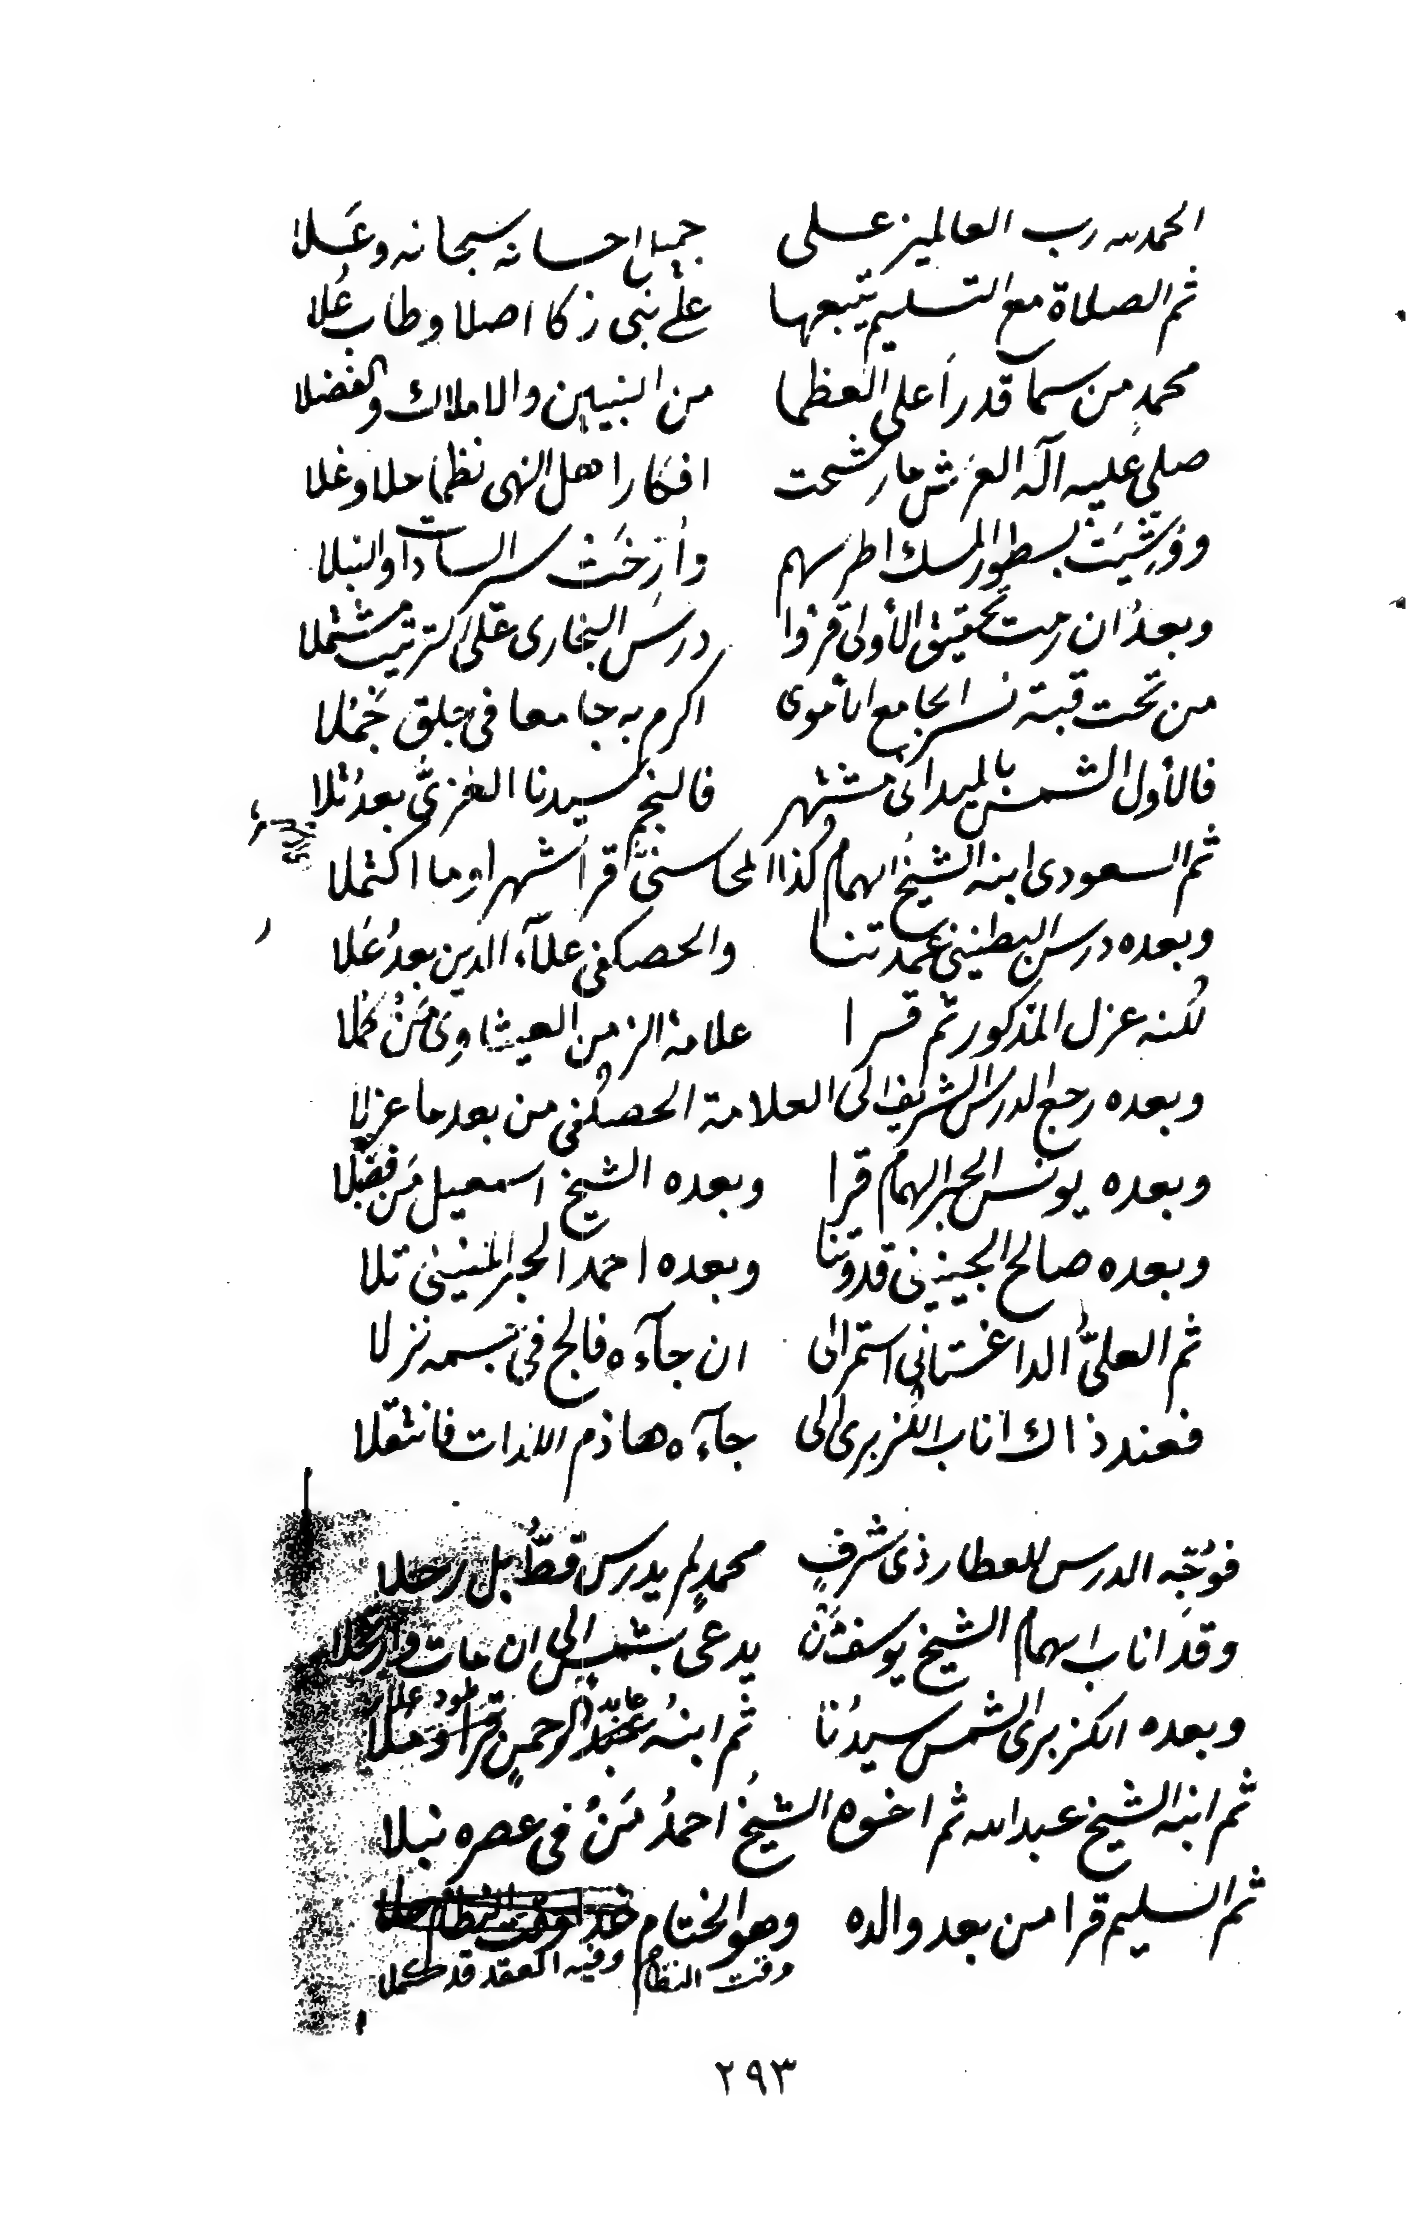 الحمد لله رب العالمين على جميل احسانه سبحانه وعَلا
ثم الصلاة مع التسليم يتبعها على نبى زكا اصلا وطاب عُلا
محمد من سما قدراً على العظما من النبيين والاملاك والفضلا
صلى عليه اله العرش ما رشحت افكار اهل النهى نظما حلا وغلا
ووُشِّيَتْ بسطور المسك اطرسهم وأرخَتْ سير السادات والنبلا
وبعدُ ان رمت تحقيق الأولى قرؤا درسَ البخارى على الترتيب مشتملا
من تحت قبة نسر الجامع الأموى اكرم به جامعا فى جلق جَمُلا
فالأول الشمس بالميدانى مشتهر فالنجم سيدنا الغزىُّ بعدُ تلا
ثم السعودى ابنه الشيخُ الهمام كذا المحاسنىّ قرا شهرا وما اكتملا
وبعده درس البطنينى عمدتنا والحصكفى علآء الدين بعدُ عَلا
لكنه عزل المذكور ثم قرا علامة الزمن العيثاوى مَنْ كملا
وبعده رجع الدرس الشريف الى العلامة الحصكفى من بعد ما عزلا
وبعده يونس الحبر الهمام قرا وبعده الشيخ اسمعيل مَن فضلا
وبعده صالح الجينينى قدوتنا وبعده احمد الحبر المنينى تلا
ثم العلىُّ الداغستانى استمر الى ان جآءه فالج فى جسمه نزلا
فعند ذاك اناب الكزبرى الى جآءه هاذم اللذات فانتقلا
فوُجّه الدرس للعطار ذى شرفٍ محمدٍ لم يدرس قطُّ بل رحلا
وقد اناب الهمام الشيخ يوسف مَنْ يدعى بشمس الى ان مات وارتحلا
وبعده الكزبرى الشمس سيدُنا ثم ابنُه عابد الرحمن طود علا
ثم ابنه الشيخ عبد الله ثم اخوه الشيخُ احمدُ مَنْ فى عصره نبلا
ثم السليم قرا من بعد والده وهو الختام
وقت النظام وفيه العقد قد كملا
٢٩٣